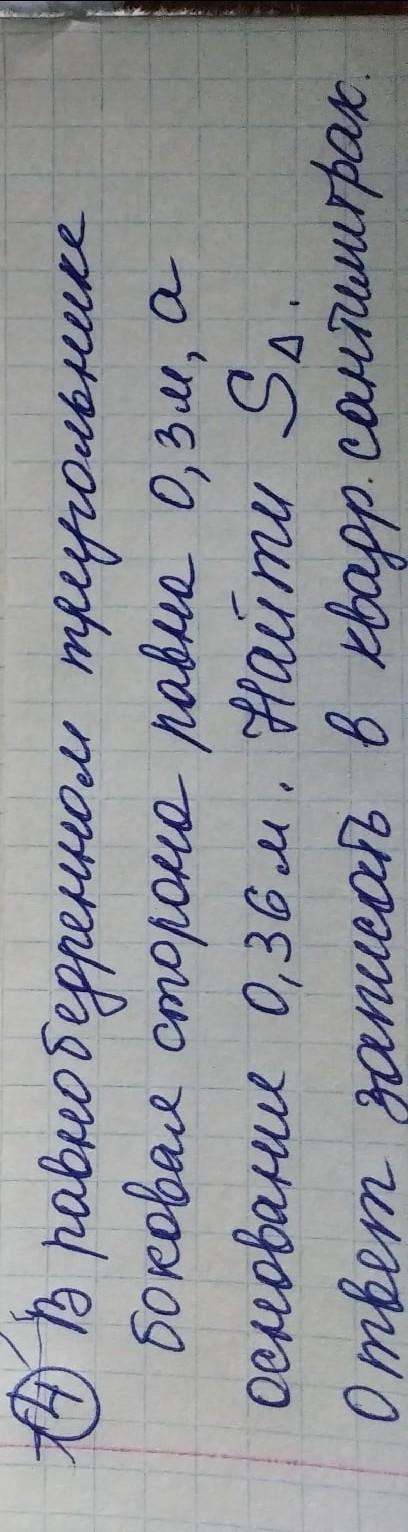 14 В равнобедренном треугольнике
боковая сторона равна 0,3м, а
основание 0,36м. Найти S△.
Ответ записать в квадр. сантиметрах.